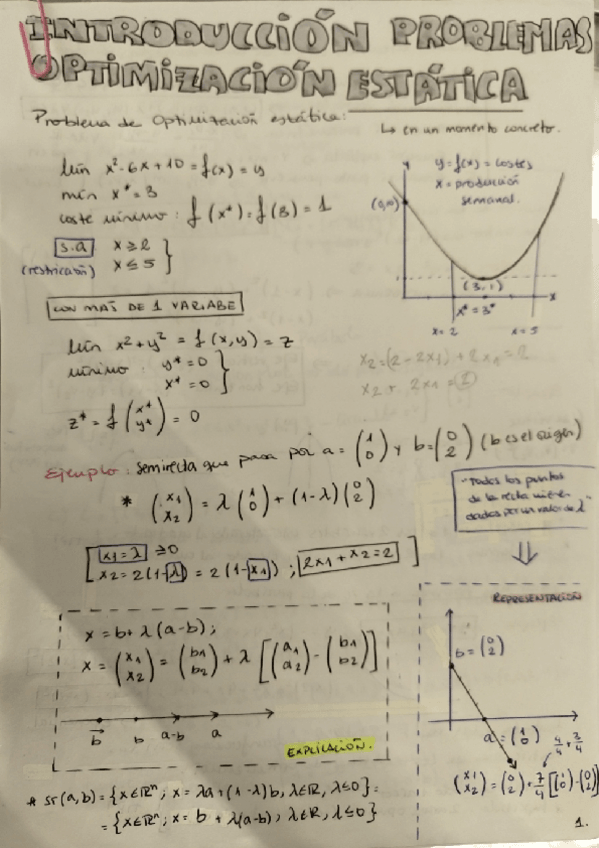 INTRODUCCIÓN PROBLEMAS
OPTIMIZACIÓN ESTÁTICA
Problema de Optimización estática:
↳ en un momento concreto.
x²-6x+10 = f(x) = y
mín x* = 3
coste mínimo: f(x*) = f(3) = 1
s.a x ≥ 2
(restricción) x ≤ 5
y = f(x) = costes
x = producción
semanal.
y
(3,1)
x
x* = 3*
x=2 x=5
CON MAS DE 1 VARIABE
x²+y² = f(x,y) = z
mínimo: y* = 0
x* = 0
z* = f (x* y*) = 0
x2=(2-2x1)+2x1=2
x2+2x1=2
Ejemplo: semirecta que pasa por a = (1 0) y b = (0 2) (b es el origen)
* (x1 x2) = λ (1 0) + (1-λ) (0 2)
"Todos los puntos
de la recta vienen
dados por un valor de λ"
[x1 = λ ≥0
x2 = 2(1-λ) = 2(1-x1) ; 2x1+x2=2]
x = b+ λ(a-b);
x = (x1 x2) = (b1 b2) + λ [(a1 a2) - (b1 b2)]
b b a-b a
EXPLICACIÓN.
REPRESENTACIÓN
b = (0 2)
a = (1 0)
4/4 + 3/4
(x1 x2) = (0 2) + 7/4 [(1 0) - (0 2)]
* sr(a,b) = {x∈ℝⁿ; x = λa+(1-λ)b, λ∈ℝ, λ≤0} =
= {x∈ℝⁿ; x = b + λ(a-b), λ∈ℝ, λ≤0}
1.